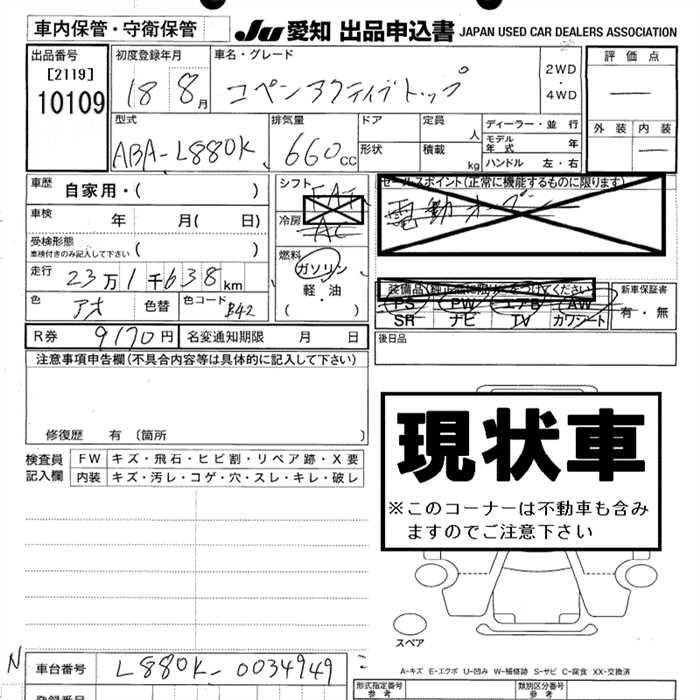 車内保管・守衛保管
JU 愛知 出品申込書 JAPAN USED CAR DEALERS ASSOCIATION
出品番号
[2119]
10109
初度登録年月
18 8月
車名・グレード
コペン アクティブトップ
2WD
・
4WD
評価点
—
外装 内装
—
型式
ABA-L880K
排気量
660cc
ドア
形状
定員 人
積載 kg
ディーラー・並行
モデル年式 年
ハンドル 左・右
車歴 自家用・( )
車検 年 月( 日)
受検形態
車検付きのみ記入して下さい ( )
走行 23万1千638km
色 アオ 色替 色コード B42
シフト FAT
冷房 AC
燃料
ガソリン
軽・油
( )
セールスポイント(正常に機能するものに限ります)
電動オープン
装備品(純正品に限り○をつけてください)
PS PW エアB AW
SR ナビ TV カワシート
新車保証書
有・無
R券 9170円 名変通知期限 月 日
後日品
注意事項申告欄(不具合内容等は具体的に記入して下さい)
修復歴 有 〔箇所 〕
現状車
※このコーナーは不動車も含み
ますのでご注意下さい
検査員
記入欄
FW キズ・飛石・ヒビ割・リペア跡・X要
内装 キズ・汚レ・コゲ・穴・スレ・キレ・破レ
スペア
A-キズ E-エクボ U-凹み W-補修跡 S-サビ C-腐食 XX-交換済
N 車台番号 L880K-0034949
登録番号
形式指定番号
参考
類別区分番号
参考